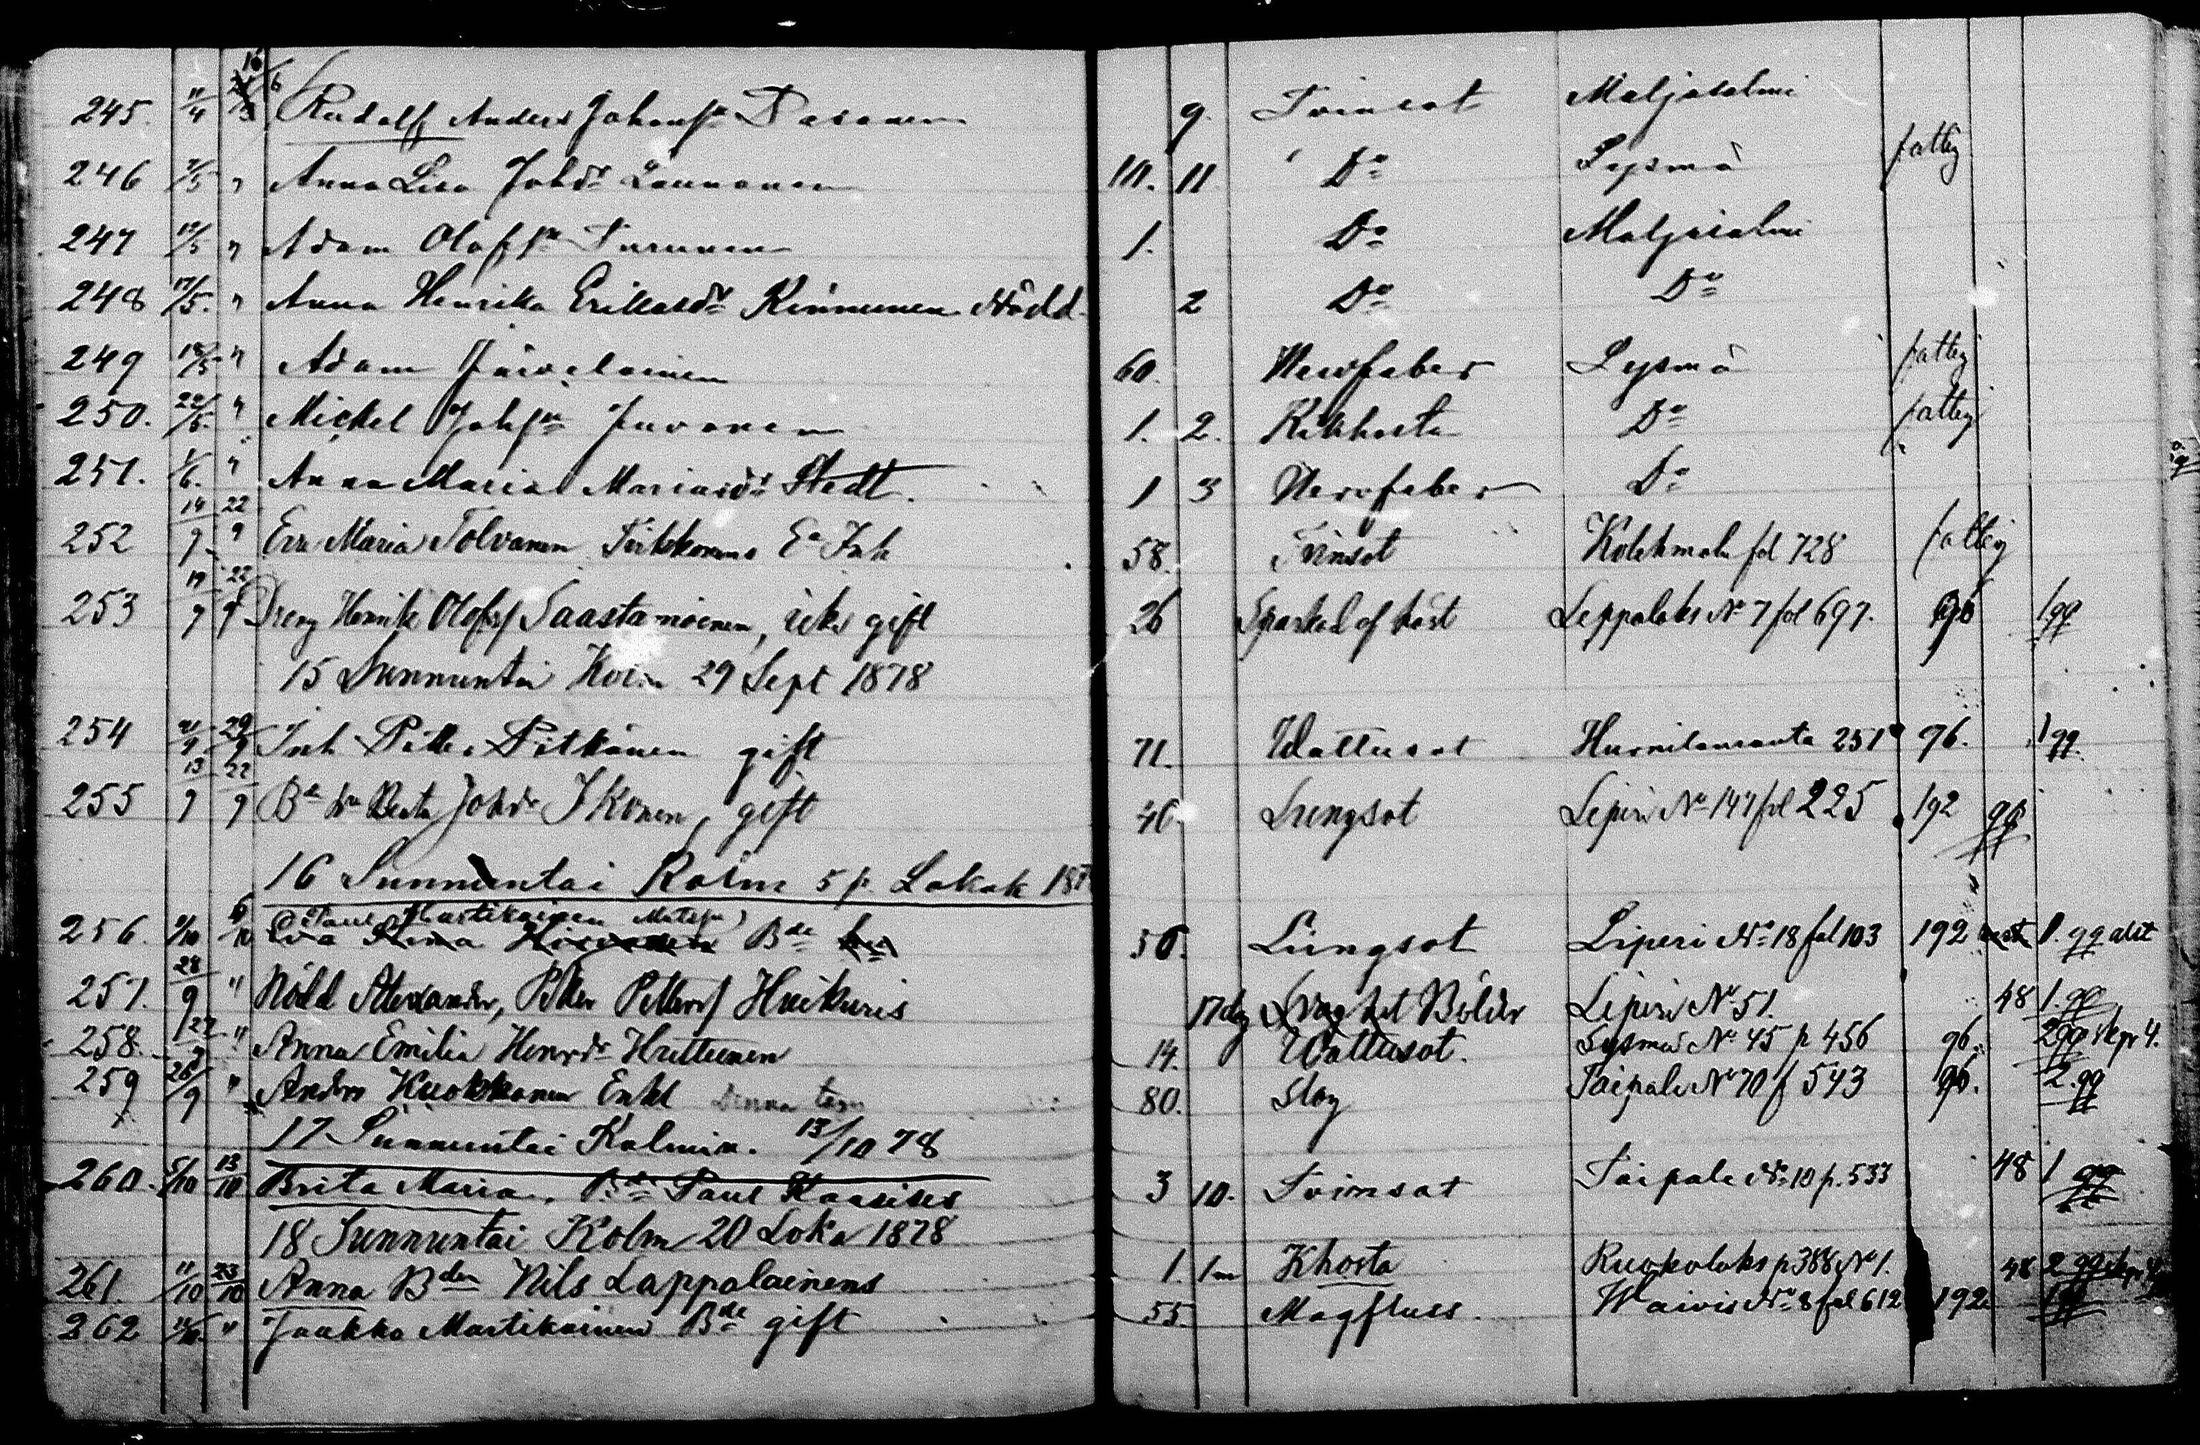 245. 11/4 16/6 Rudolf Anders Johansn Pasanen 9. Tvinsot Maljasalmi
246 7/5 " Anna Lisa Johdr Lounonen 10. 11 Do Sysmä fattig
247 12/5 " Adam Olofsn Turunen 1. Do Maljasalmi
248 17/5. " Anna Henrika Eriksdr Kinnunen Nödd 2 Do Do
249 18/5 " Adam Järveläinen 60. Nervfeber Sysmä fattig
250. 22/5. " Michel Johsn Juvonen 1. 2. Kikhosta Do fattig
251. 1/6. " Anna Maria Mariasdr Stedt. 1 3 Nervfeber Do
252 14/9 22/9 Eva Maria Tolvanen Enka Inh 58. Tvinsot Kolehmala fol 728 fattig
253 19/9 22/9 Dreng Henrik Olofss Saastamoinen, icke gift 26 Sparkad af häst Leppälaks No 7 fol 697. 96 1 qq
15 Sunnuntai Kolm 29 Sept 1878
254 21/9 29/9 Inh Petter Pitkänen gift 71. Wattusot 251 96. 1 qq.
255 13/9 22/9 Bde hu Beata Johdr Ikonen, gift 46. Lungsot Liperi No 147 fol 225 192 qq
16 Sunnuntai Kolm 5 p. Lokak 187
Paul Martikainen Matsn
256. 2/10 6/10 Eva Bde 50. Lungsot Liperi No 18 fol 103 192 1. qq
257. 28/9 " Nödd Alexander, Petter Petterss Huikuris 17 dag Slag Liperi No 51. 48 1. qq
258. 22/9 " Anna Emilia Henrdr Huttunen 14. Wattusot. Sysmä No 45 p 456 96. 2 qq skpr 4.
259 26/9 " Anders Kuokkanen Enkl 80. Slag Taipale No 70 f 543 96. 2. qq
17 Sunnuntai Kolmin. 13/10 78
260. 5/10 13/10 Brita Maria. Bde Paul Kaasises 3 10. Tvinsot Taipale No 10 p. 533 48 1 qq
18 Sunnuntai Kolm 20 Loka 1878
261. 11/10 23/10 Anna Bden Nils Lappalainens 1. 1 m Khosta Ruokolaks p 388 No 1. 48 2 qq
262 " Jaakko Martikainen Bde gift 55 Magfluss. Waivis No 8 fol 612 192